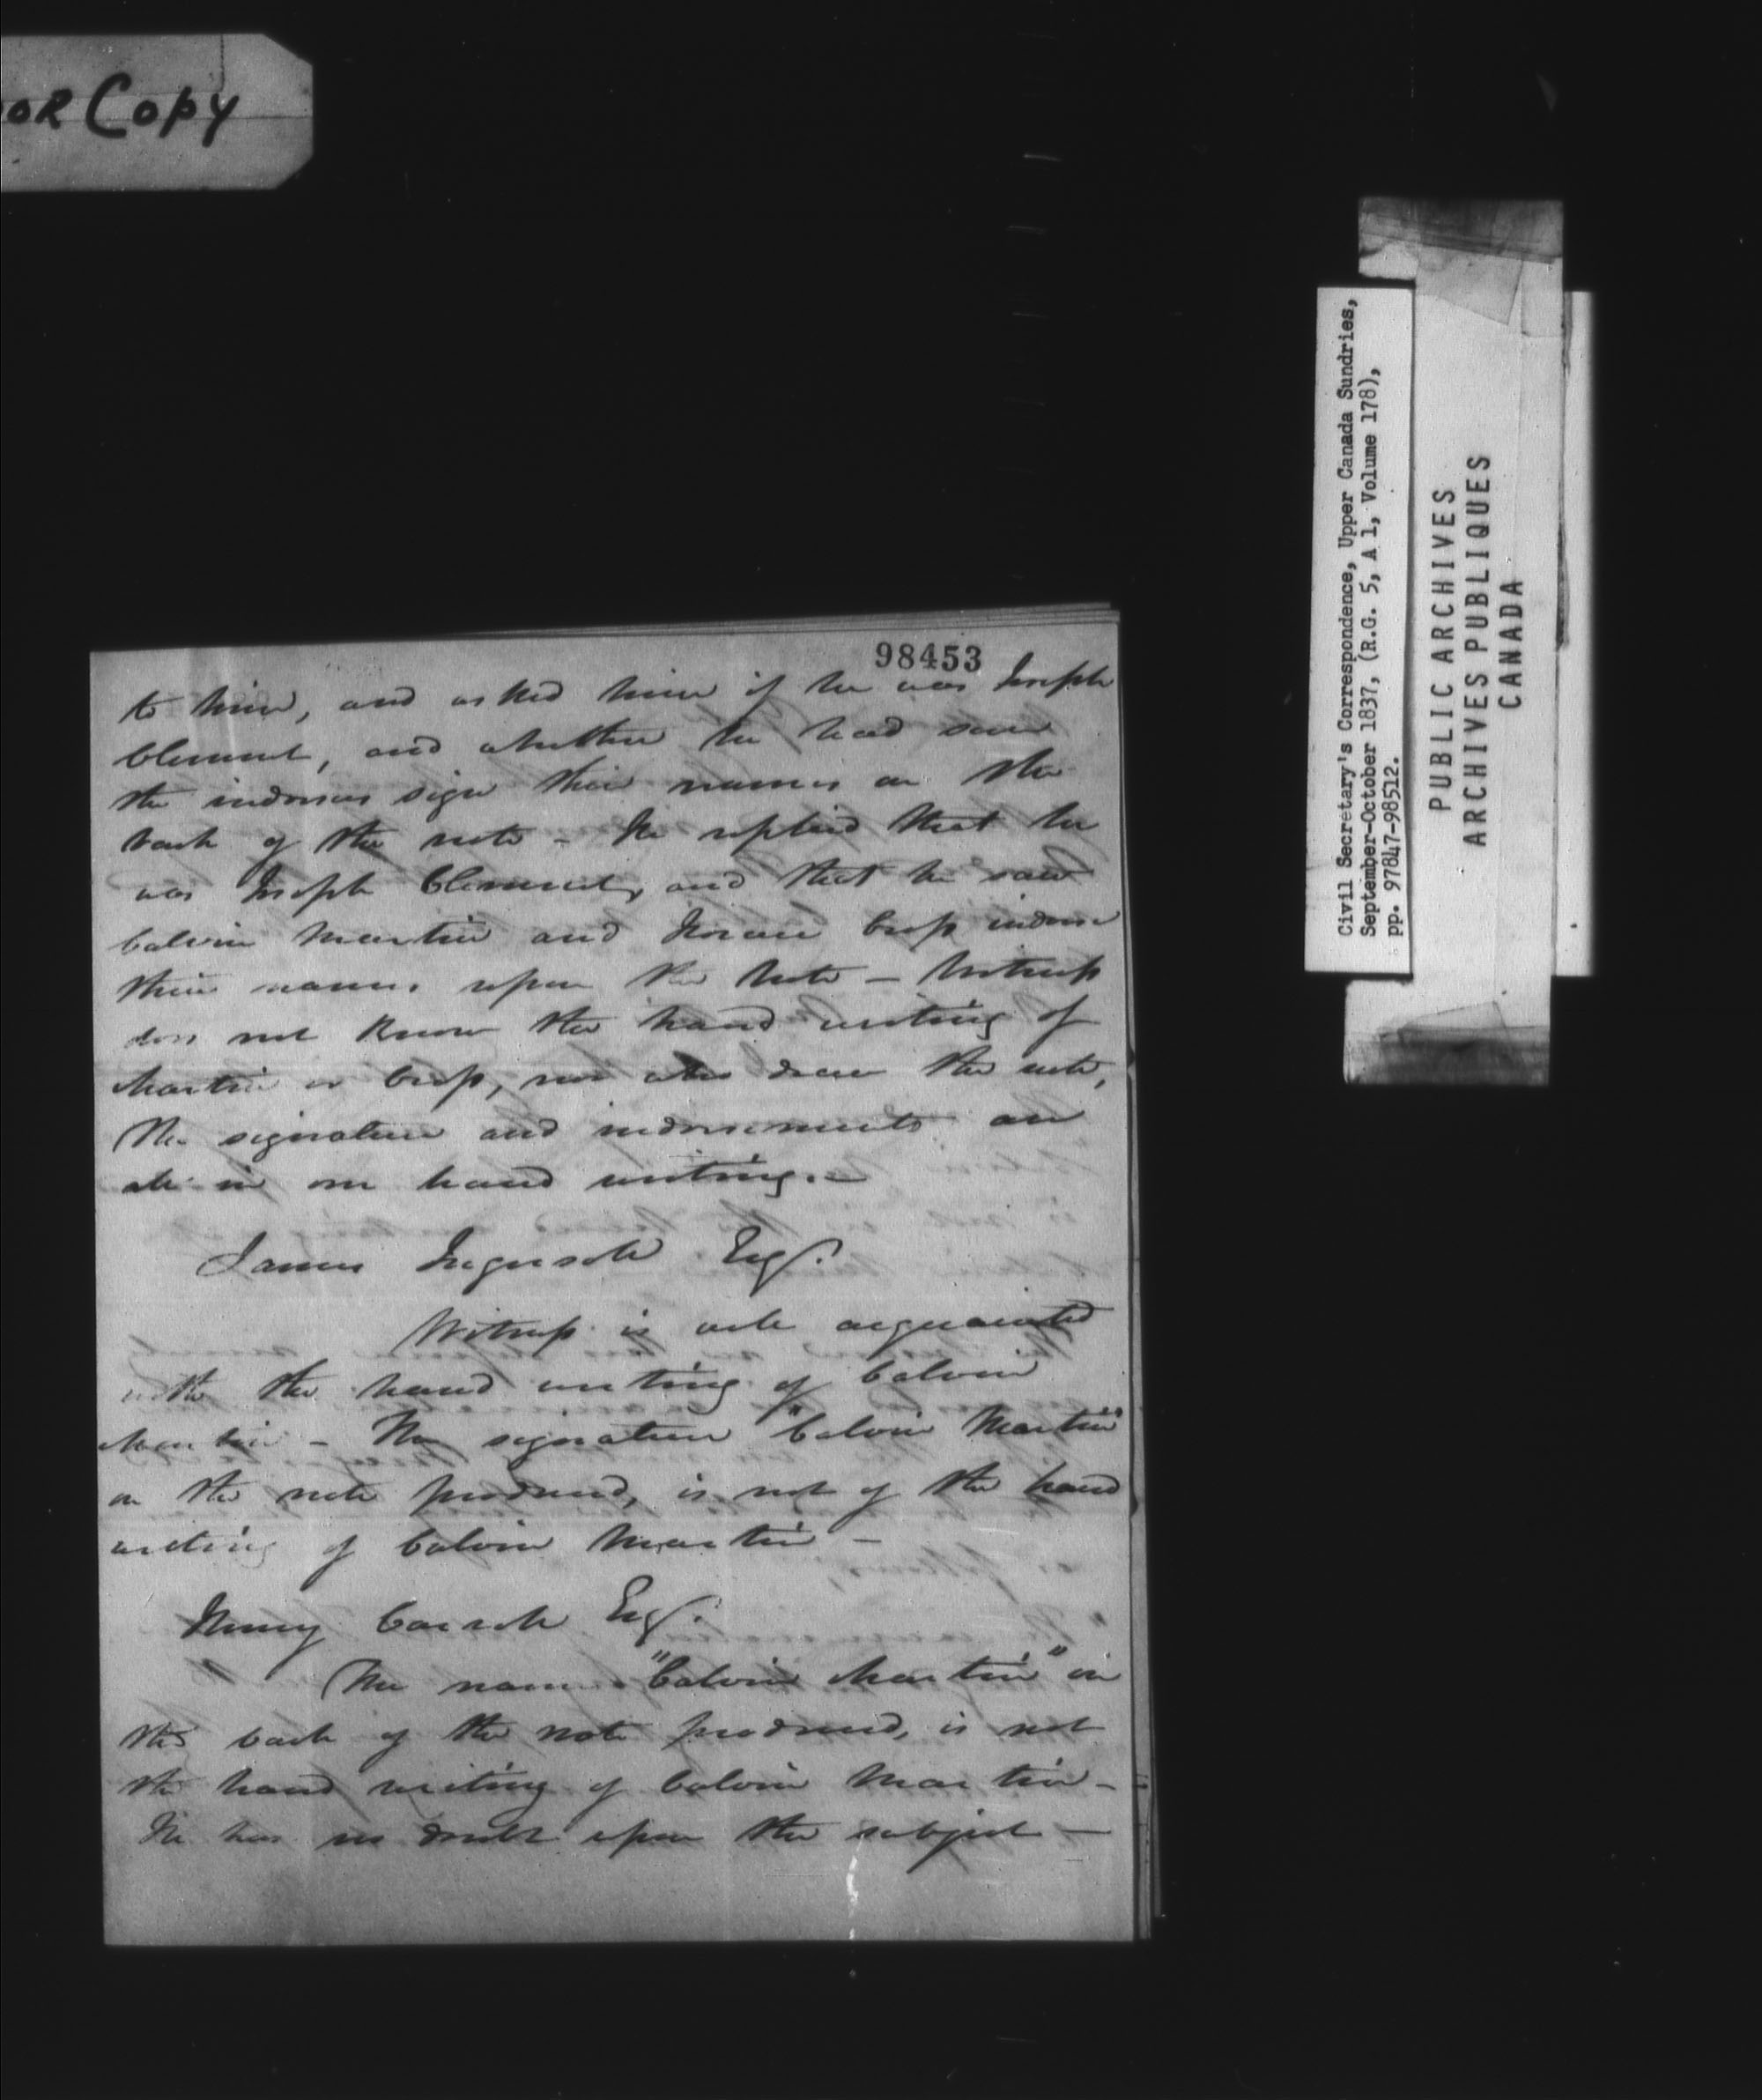 OR Copy
98453
to him, and asked him if he was Joseph
Clement, and whether he had seen
the indorsers sign their names on the
back of the note – He replied that he
was Joseph Clement, and that he saw
Calvin Martin and Horace Cross indorse
their names upon the Note – Witness
does not know the hand writing of
Martin or Cross, nor who drew the note,
The signature and indorsements are
all in one hand writing. –
James Ingersoll Esqr.
Witness is well acquainted
with the hand writing of Calvin
Martin – The signature "Calvin Martin"
on the note produced, is not of the hand
writing of Calvin Martin –
Henry Carroll Esqr.
The name "Calvin Martin" on
the back of the note produced, is not
the hand writing of Calvin Martin –
He has no doubt upon the subject –
Civil Secretary's Correspondence, Upper Canada Sundries,
September-October 1837, (R.G. 5, A 1, Volume 178),
pp. 97847-98512.
PUBLIC ARCHIVES
ARCHIVES PUBLIQUES
CANADA